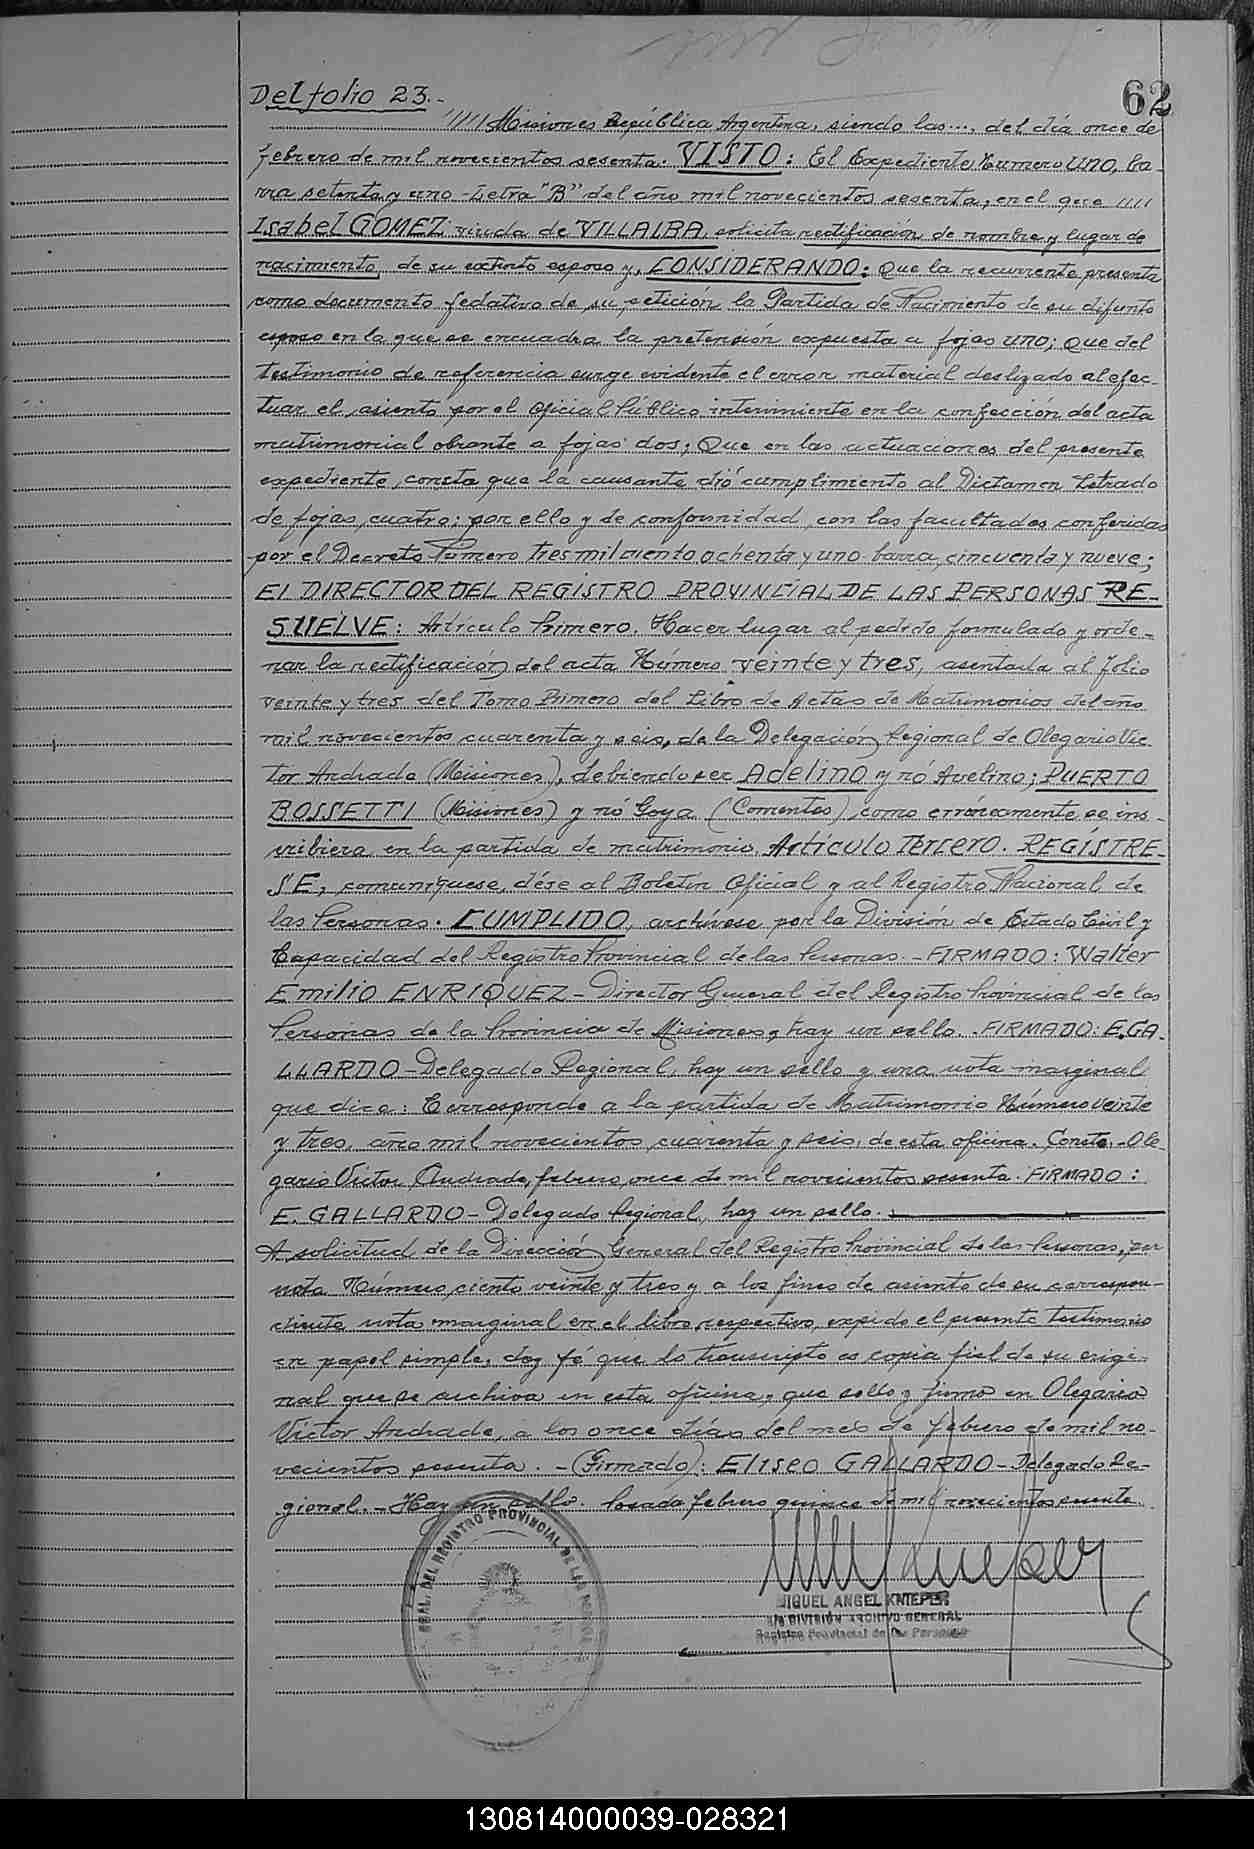 62
Del folio 23.-
///// Misiones República Argentina, siendo las..., del día once de
febrero de mil novecientos sesenta. VISTO: El Expediente Número UNO, ba-
rra setenta y uno - Letra "B" del año mil novecientos sesenta, en el que ////
Isabel GOMEZ viuda de VILLALBA, solicita rectificación de nombre y lugar de
nacimiento, de su extinto esposo y, CONSIDERANDO: Que la recurrente presenta
como documento fedativo de su petición la Partida de Nacimiento de su difunto
esposo en la que se encuadra la pretensión expuesta a fojas uno; Que del
testimonio de referencia surge evidente el error material deslizado al efec-
tuar el asiento por el Oficial Público interviniente en la confección del acta
matrimonial obrante a fojas dos; Que en las actuaciones del presente
expediente, consta que la causante dió cumplimiento al Dictamen Letrado
de fojas cuatro; por ello y de conformidad con las facultades conferidas
por el Decreto Número tres mil ciento ochenta y uno barra cincuenta y nueve;
El DIRECTOR DEL REGISTRO PROVINCIAL DE LAS PERSONAS RE-
SUELVE: Artículo Primero. Hacer lugar al pedido formulado y orde-
nar la rectificación del acta Número veinte y tres, asentada al folio
veinte y tres del Tomo Primero del Libro de Actas de Matrimonios del año
mil novecientos cuarenta y seis, de la Delegación Regional de Olegario Vic-
tor Andrade (Misiones), debiendo ser Adelino y nó Avelino; PUERTO
BOSSETTI (Misiones) y nó Goya (Corrientes) como erróneamente se ins-
cribiera en la partida de matrimonio. Artículo Tercero. REGÍSTRE-
SE, comuníquese, dése al Boletín Oficial y al Registro Nacional de
las Personas. CUMPLIDO, archívese por la División de Estado Civil y
Capacidad del Registro Provincial de las Personas.- FIRMADO: Walter
Emilio ENRIQUEZ - Director General del Registro Provincial de las
Personas de la Provincia de Misiones, hay un sello. FIRMADO: E. GA-
LLARDO - Delegado Regional, hay un sello y una nota marginal
que dice: Corresponde a la partida de Matrimonio Número veinte
y tres, año mil novecientos cuarenta y seis, de esta oficina. Conste.- Ole-
gario Victor Andrade, febrero once de mil novecientos sesenta. FIRMADO:
E. GALLARDO - Delegado Regional, hay un sello.
A solicitud de la Dirección General del Registro Provincial de las Personas, por
nota Número ciento veinte y tres y a los fines de asiento de su correspon-
diente nota marginal en el libro respectivo, expido el presente testimonio
en papel simple, doy fé que lo transcripto es copia fiel de su origi-
nal que se archiva en esta oficina, que sello y firmo en Olegario
Victor Andrade, a los once días del mes de febrero de mil no-
vecientos sesenta. - (Firmado): Eliseo GALLARDO - Delegado Re-
gional. - Hay un sello. Posadas febrero quince de mil novecientos sesenta.
GRAL. DEL REGISTRO PROVINCIAL DE LAS PERSONAS
MIGUEL ANGEL KNIEPER
DIVISIÓN ARCHIVO GENERAL
Registro Provincial de las Personas
130814000039-028321